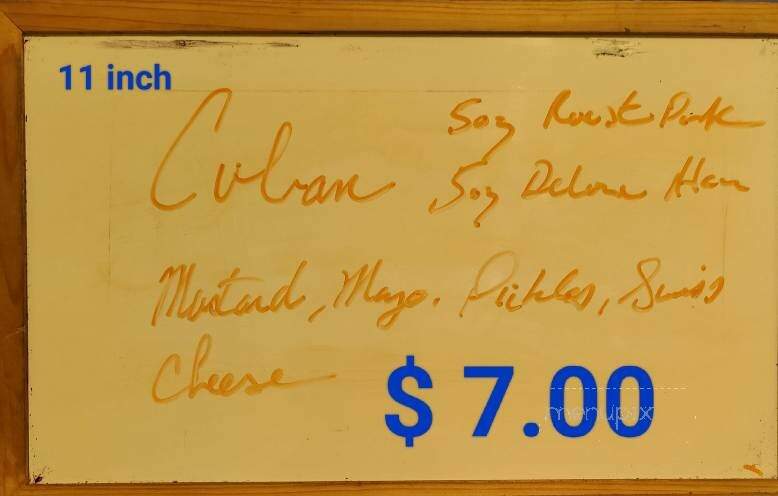 11 inch
Cuban
5oz Roast Pork
5oz Deluxe Ham
Mustard, Mayo. Pickles, Swiss
Cheese
$ 7.00
menupix